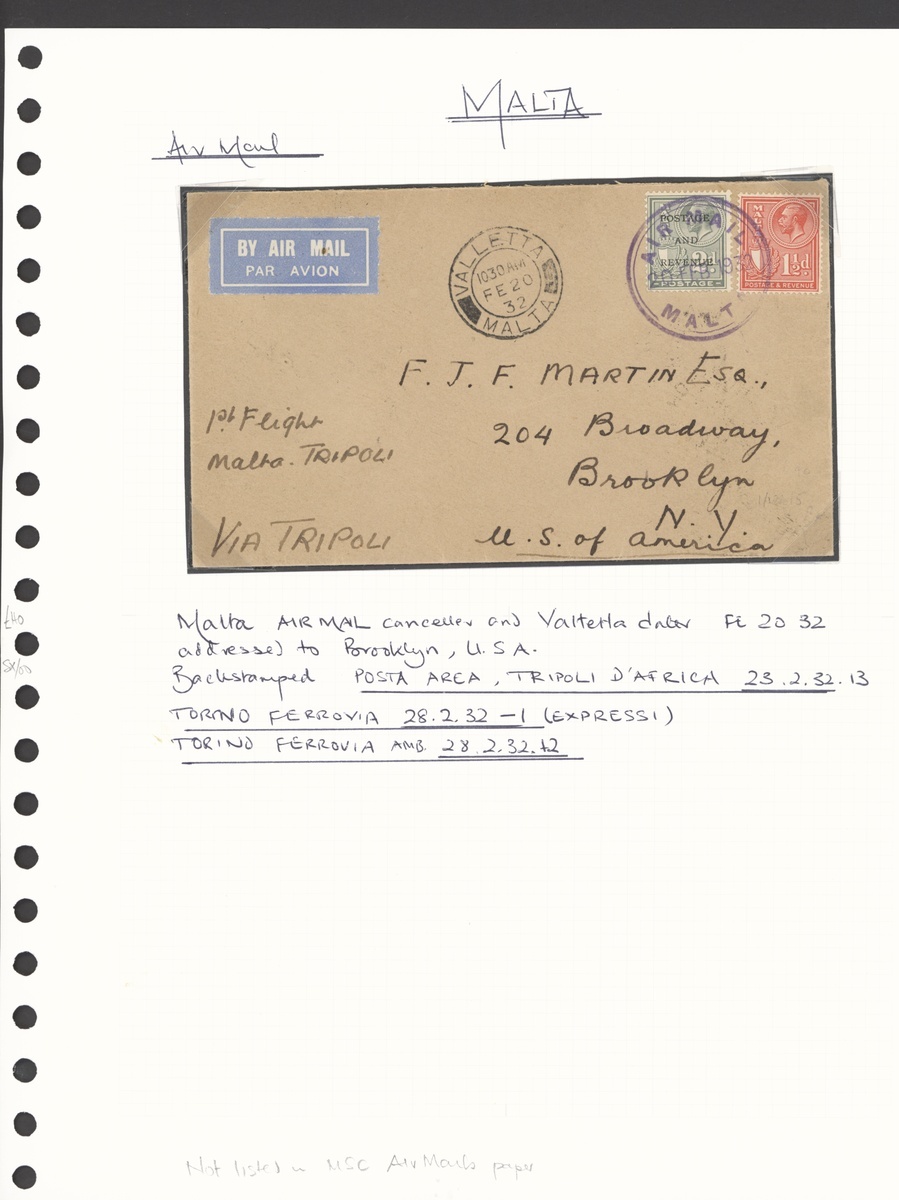 MALTA
Air Mail
BY AIR MAIL
PAR AVION
VALLETTA
1030 AM
FE 20
32
MALTA
POSTAGE
AND
REVENUE
POSTAGE
AIR MAIL
MALTA
1½d
POSTAGE & REVENUE
F. J. F. MARTIN ESQ.,
1st Flight
204 Broadway,
Malta-TRIPOLI
Brooklyn
N. Y.
VIA TRIPOLI
U.S. of america
Malta AIR MAIL canceller and Valletta dater FE 20 32
addressed to Brooklyn, U.S.A.
Backstamped POSTA AREA, TRIPOLI D'AFRICA 23.2.32.13
TORINO FERROVIA 28.2.32-1 (EXPRESSI)
TORINO FERROVIA AMB. 28.2.32.12
£40
Not listed in MSC Air Mails paper